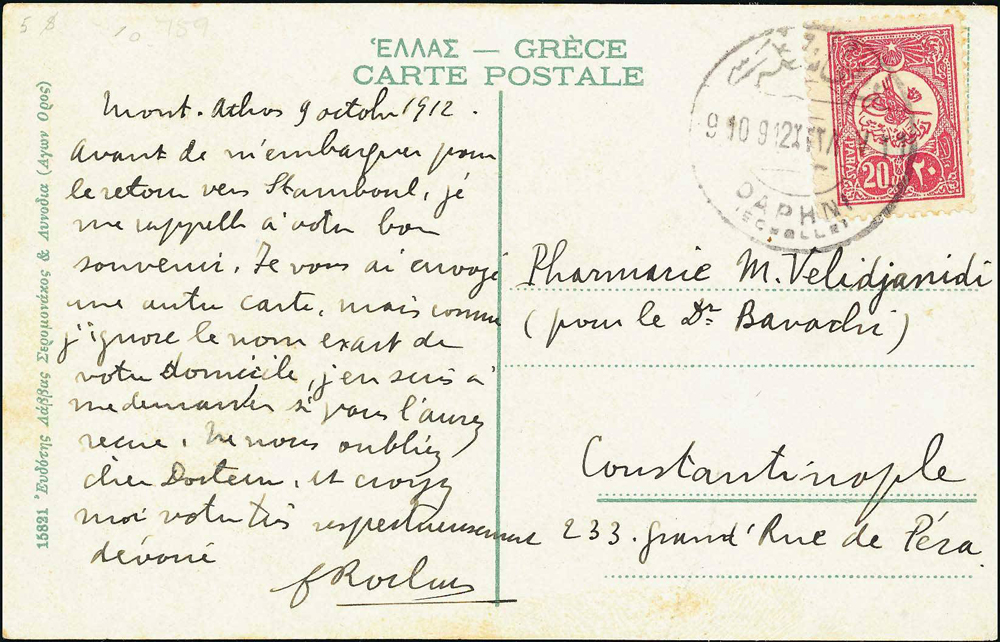 5 8
789
ἙΛΛΑΣ — GRÈCE
CARTE POSTALE
Mont. Athos 9 octobre 1912.
Avant de m'embarquer pour
le retour vers Stamboul, je
me rappelle à votre bon
souvenir. Je vous ai envoyé
une autre carte, mais comme
j'ignore le nom exact de
votre domicile, j'en suis à
me demander si vous l'aurez
reçue. Ne nous oubliez,
cher Docteur, et croyez
moi votre très respectueusement
dévoué
9 10 912
DAPHNI
(ECHELLE)
PARAS
20
٢٠
Pharmacie M. Velidjanidi
(pour le Dr
Constantinople
233. Grand'Rue de Péra
15821 Ἐκδότης Σάββας Ἱερομονάχος & Συνοδία (Ἅγιον Ὄρος)